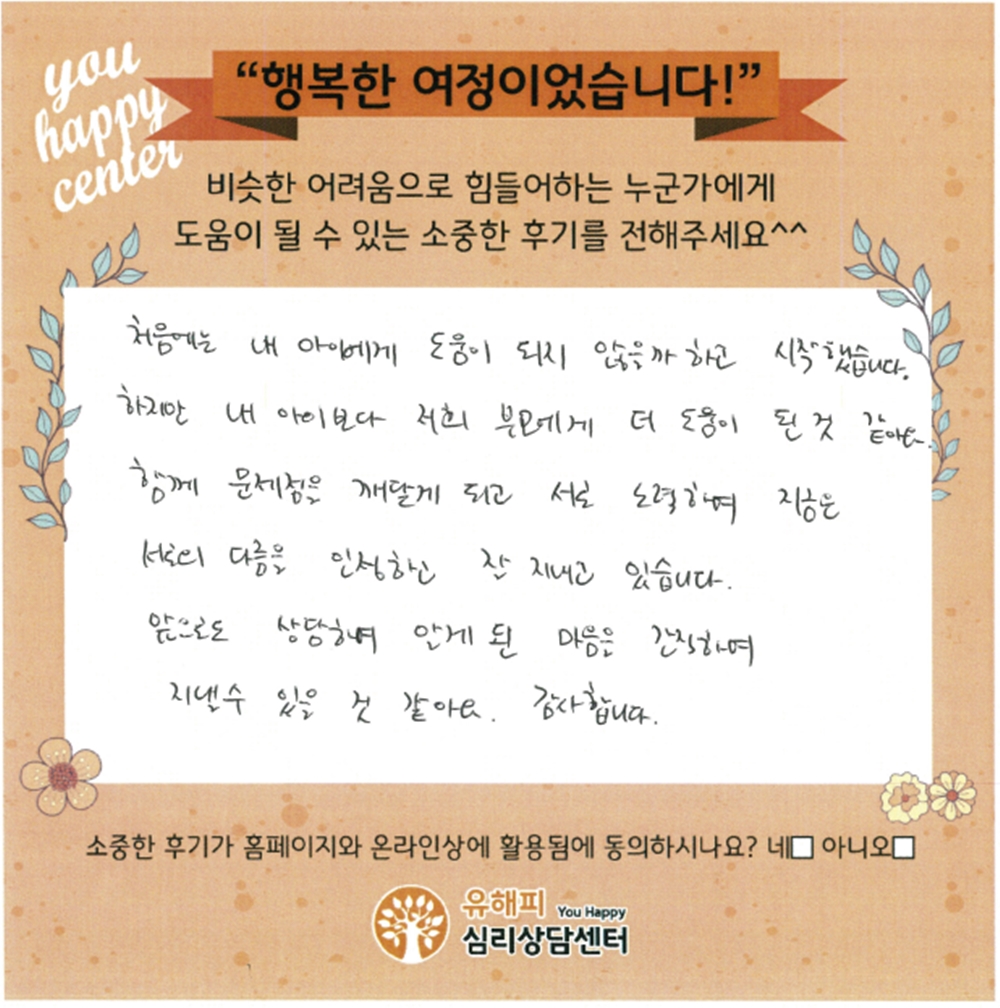 you
happy
center
“행복한 여정이었습니다!”
비슷한 어려움으로 힘들어하는 누군가에게
도움이 될 수 있는 소중한 후기를 전해주세요^^
처음에는 내 아이에게 도움이 되지 않을까 하고 시작했습니다.
하지만 내 아이보다 저희 부모에게 더 도움이 된 것 같아요.
함께 문제점을 깨달게 되고 서로 노력하며 지금은
서로의 다름을 인정하고 잘 지내고 있습니다.
앞으로도 상담하며 알게 된 마음을 간직하며
지낼수 있을 것 같아요. 감사합니다.
소중한 후기가 홈페이지와 온라인상에 활용됨에 동의하시나요? 네□ 아니오□
유해피 You Happy
심리상담센터